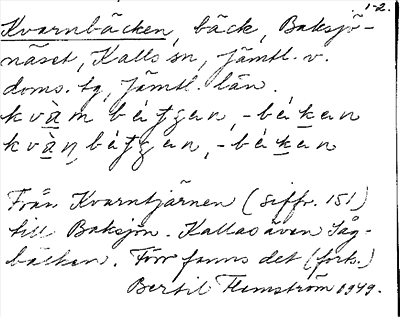 1-2.
Kvarnbäcken, bäck, Baksjö-
näset, Kalls sn, Jämtl. v.
doms. tg, Jämtl. län.
kvàrn bétʃen, -béken
kvàṇ bétʃen, -béken
Från Kvarntjärnen (siffr. 151)
till Baksjön. Kallas även Såg-
bäcken. Förr fanns det (forts.)
Bertil Flemström 1949.